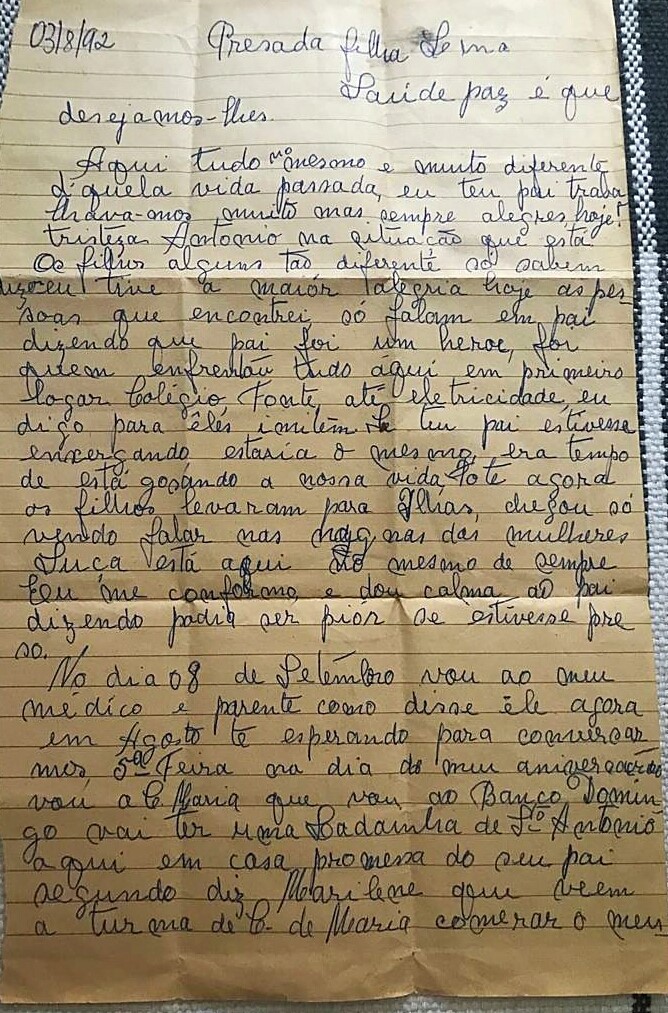 03/8/92 Presada filha
Saúde paz é que
desejamos-lhes.
Aqui tudo no mesmo e muito diferente
d'quela vida passada, eu teu pai traba
lhava-mos muito mas sempre alegres, hoje!
tristezas Antonio na situação que está
Os filhos alguns tão diferente só sabem
eu tive a maiór alegria hoje as pes
soas que encontrei, só falam em pai
dizendo que pai foi um heroe, foi
quem enfrentão tudo áqui em primeiro
logar Colégio Fonte, até eletricidade, eu
digo para êlés imitem. Se teu pai estivesse
enxergando estaria o mesmo, era tempo
de está gosando a nossa vida, agora
os filhos levaram para Ilhás, chegou só
vendo falar nas das mulheres
está aqui mesmo de sempre
Eeu me conformo, e dou calma ao pai
dizendo padia ser piór se estivesse pre
so.
No dia 08 de Setembro vou ao meu
médico e parente como disse êle agora
em Agosto te esperando para conversar
mos, 5ª Feira na dia do meu aniversário
vou a C. Maria que vou ao Banco, Domin
go vai ter uma Ladainha de Sto Antonio
aqui em casa promessa do seu pai
segundo diz Marilene que veem
a turma de C. de Maria comerar o meu